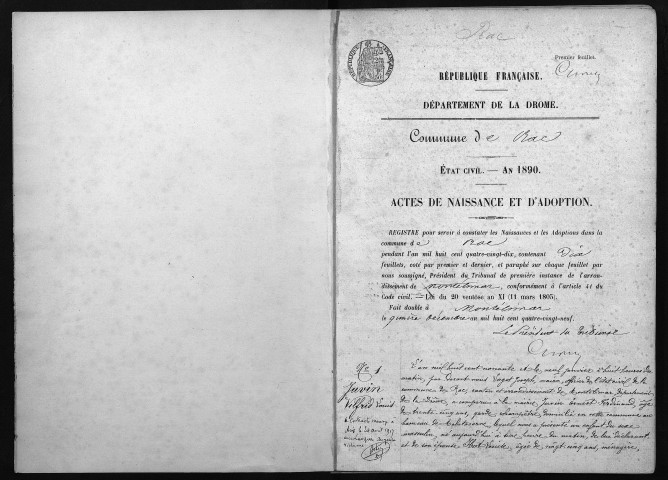 Rac
Premier feuillet.
RÉPUBLIQUE FRANÇAISE
RÉPUBLIQUE FRANÇAISE.
DÉPARTEMENT DE LA DROME.
Commune de Rac
ÉTAT CIVIL. — AN 1890.
ACTES DE NAISSANCE ET D'ADOPTION.
REGISTRE pour servir à constater les Naissances et les Adoptions dans la
commune de Rac
pendant l'an mil huit cent quatre-vingt-dix, contenant Dix
feuillets, coté par premier et dernier, et paraphé sur chaque feuillet par
nous soussigné, Président du Tribunal de première instance de l'arron-
dissement de Montélimar, conformément à l'article 41 du
Code civil. — Loi du 20 ventôse an XI (11 mars 1803).
Fait double à Montélimar
le quinze Décembre an mil huit cent quatre-vingt-neuf.
Le Président du Tribunal
No 1
Juvin
Wilfrid Louis
L'an mil huit cent nonante et le neuf janvier à huit heures du
matin, par devant nous Joseph, maire, officier de l'état civil de la
commune de Rac, canton et arrondissement de Montélimar, département
de la Drôme, a comparu à la mairie, Juvin Ernest Ferdinand, âgé
de trente cinq ans, garde champêtre, domicilié en cette commune au
hameau de Malataverne, lequel nous a présenté un enfant du sexe
masculin, né aujourd'hui à une heure du matin, de lui déclarant
et de son épouse âgée de vingt cinq ans, ménagère,